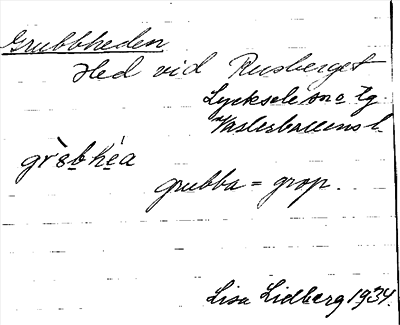 Grubbheden
Hed vid Rusberget
Lycksele sn o Tg.
Västerbottens l.
grubba = grop.
Lisa Lidberg 1934.